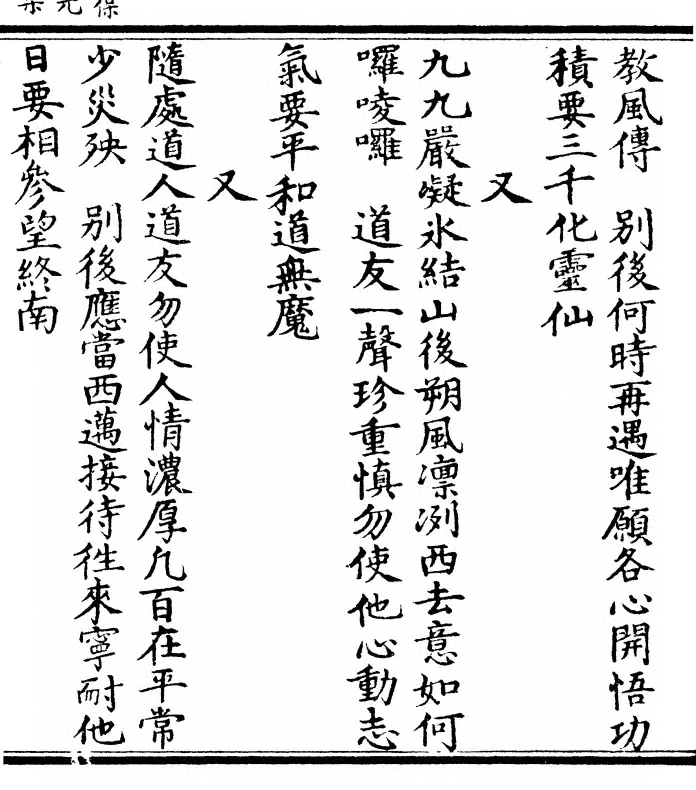 教風傳　別後何時再遇唯願各心開悟功
積要三千化靈仙
又
九九嚴凝氷結山後朔風凛冽西去意如何
囉唛囉　道友一聲珍重慎勿使他心動志
氣要平和道無魔
又
隨處道人道友勿使人情濃厚凡百在平常
少災殃　別後應當西邁接待徃來寧耐他
日要相參望終南